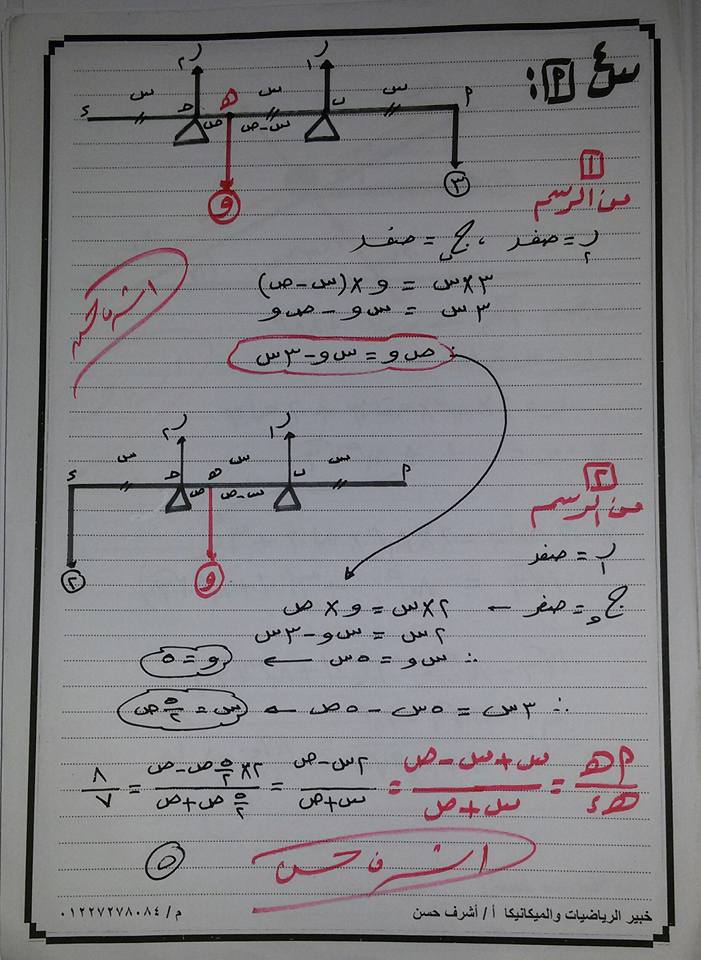 س٤ [P]:
ر٢ ر١
ء س حـ ص هـ س س-ص ب س P
و ٣
١
من الرسم
ر٢ = صفر ، ج ب = صفر
٣×س = و×(س-ص)
٣س = س و - ص و
∴ ص و = س و - ٣س
اشرف حسن
ر٢ ر١
ء س حـ ص هـ س س-ص ب س P
٢ و
٢
من الرسم
ر١ = صفر
ج حـ = صفر ← ٢×س = و×ص
٢س = س و - ٣س
∴ س و = ٥س ← و = ٥
∴ ٣س = ٥س - ٥ص ← س = ٥/٢ ص
P هـ / هـ ء = س+س-ص / س+ص = ٢س-ص / س+ص = ٢×٥/٢ ص-ص / ٥/٢ ص+ص = ٨/٧
اشرف حسن
٥
خبير الرياضيات والميكانيكا أ / أشرف حسن م / ٠١٢٢٧٢٧٨٠٨٤